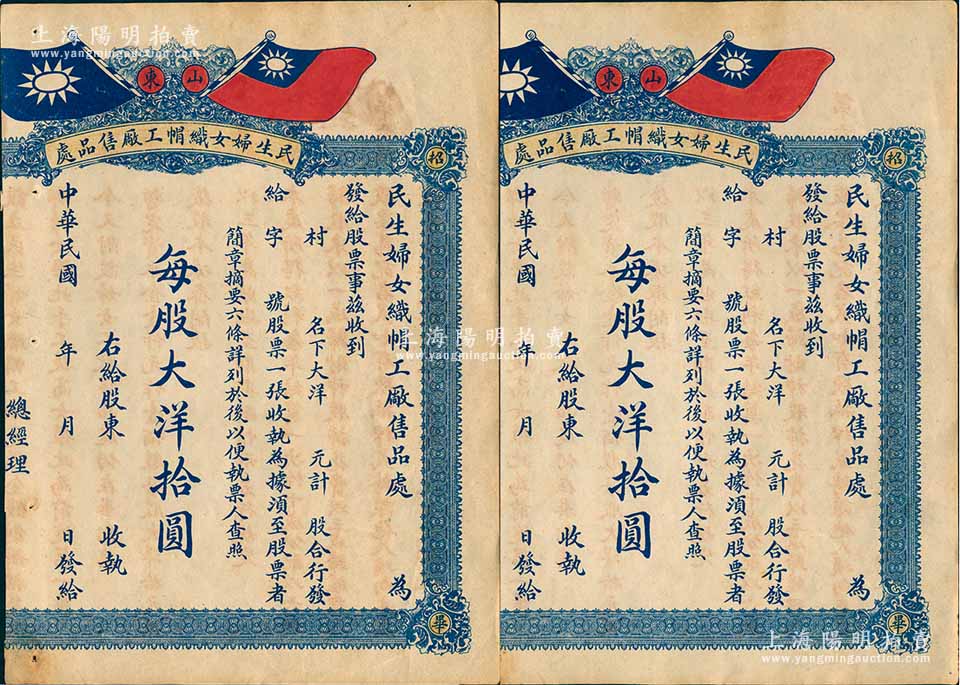 上海陽明拍賣
www.yangmingauction.com
東山
民生婦女織帽工廠售品處
招
民生婦女織帽工廠售品處 為
發給股票事茲收到
村 名下大洋 元計 股合行發
給 字 號股票一張收執為據湏至股票者
簡章摘要六條詳列於後以便執票人查照
每股大洋拾圓
右給股東 收執
中華民國 年 月 日發給
總經理
畢
上海陽明拍賣
www.yangmingauction.com
東山
民生婦女織帽工廠售品處
招
民生婦女織帽工廠售品處 為
發給股票事茲收到
村 名下大洋 元計 股合行發
給 字 號股票一張收執為據湏至股票者
簡章摘要六條詳列於後以便執票人查照
每股大洋拾圓
右給股東 收執
中華民國 年 月 日發給
畢
上海陽明拍賣
www.yangmingauction.com